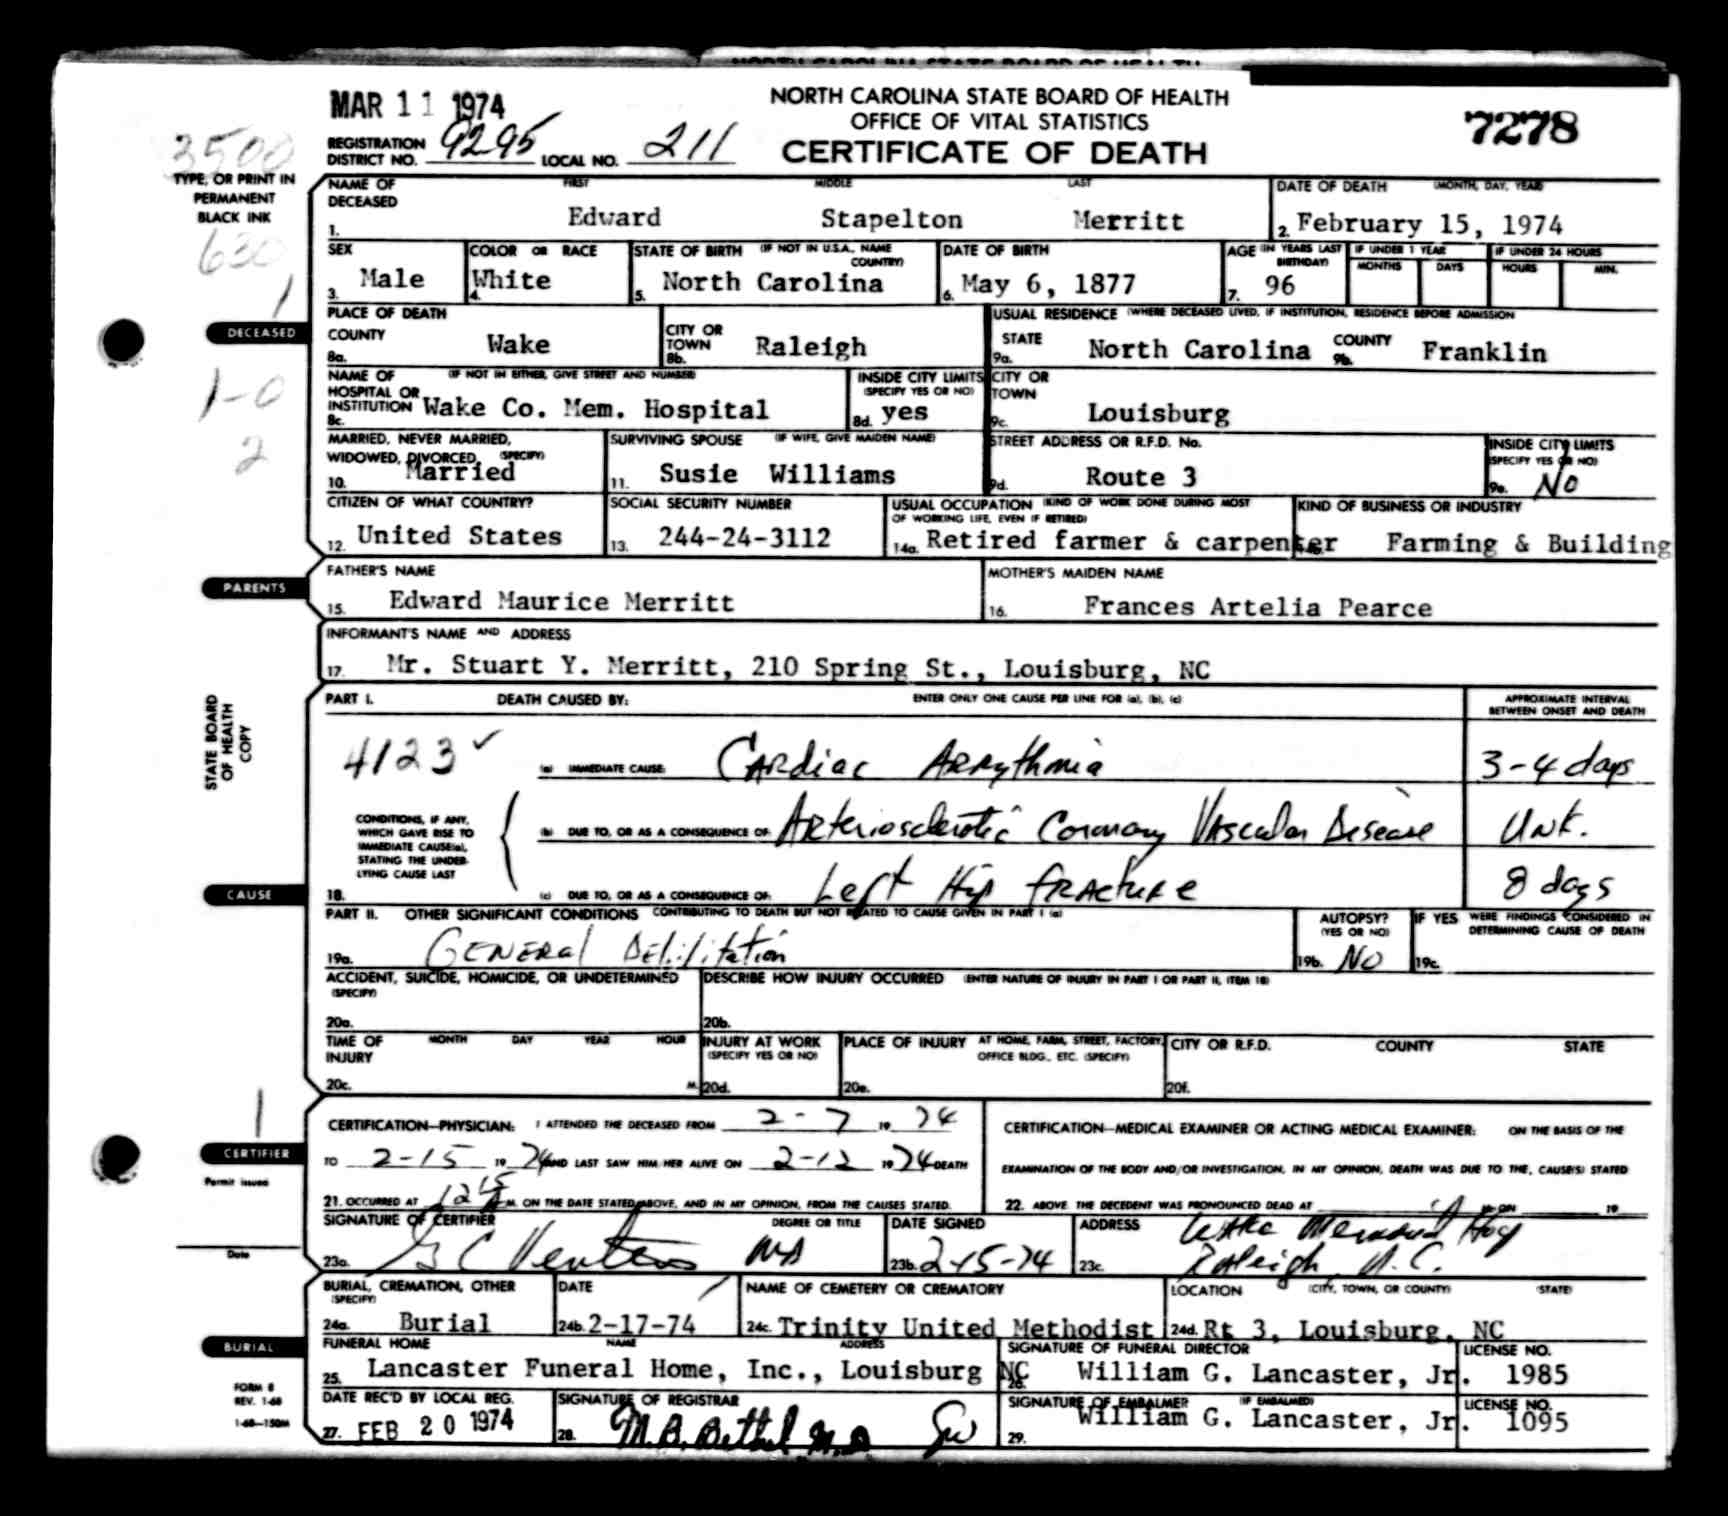 NORTH CAROLINA STATE BOARD OF HEALTH
MAR 11 1974
NORTH CAROLINA STATE BOARD OF HEALTH
OFFICE OF VITAL STATISTICS
CERTIFICATE OF DEATH
7278
3500
REGISTRATION DISTRICT NO. 9295 LOCAL NO. 211
TYPE, OR PRINT IN
PERMANENT
BLACK INK
630
1
DECEASED
1-0
2
NAME OF DECEASED FIRST MIDDLE LAST DATE OF DEATH (MONTH, DAY, YEAR)
1. Edward Stapelton Merritt 2. February 15, 1974
SEX COLOR OR RACE STATE OF BIRTH (IF NOT IN U.S.A., NAME COUNTRY) DATE OF BIRTH AGE (IN YEARS LAST BIRTHDAY) IF UNDER 1 YEAR IF UNDER 24 HOURS
MONTHS DAYS HOURS MIN.
3. Male 4. White 5. North Carolina 6. May 6, 1877 7. 96
PLACE OF DEATH USUAL RESIDENCE (WHERE DECEASED LIVED, IF INSTITUTION, RESIDENCE BEFORE ADMISSION
COUNTY 8a. Wake CITY OR TOWN 8b. Raleigh STATE 9a. North Carolina COUNTY 9b. Franklin
NAME OF HOSPITAL OR INSTITUTION (IF NOT IN EITHER, GIVE STREET AND NUMBER) 8c. Wake Co. Mem. Hospital INSIDE CITY LIMITS (SPECIFY YES OR NO) 8d. yes CITY OR TOWN 9c. Louisburg
MARRIED, NEVER MARRIED, WIDOWED, DIVORCED, (SPECIFY) 10. Married SURVIVING SPOUSE (IF WIFE, GIVE MAIDEN NAME) 11. Susie Williams STREET ADDRESS OR R.F.D. No. 9d. Route 3 INSIDE CITY LIMITS (SPECIFY YES OR NO) 9e. No
CITIZEN OF WHAT COUNTRY? SOCIAL SECURITY NUMBER USUAL OCCUPATION (KIND OF WORK DONE DURING MOST OF WORKING LIFE, EVEN IF RETIRED) KIND OF BUSINESS OR INDUSTRY
12. United States 13. 244-24-3112 14a. Retired farmer & carpenter Farming & Building
PARENTS
FATHER'S NAME MOTHER'S MAIDEN NAME
15. Edward Maurice Merritt 16. Frances Artelia Pearce
INFORMANT'S NAME AND ADDRESS
17. Mr. Stuart Y. Merritt, 210 Spring St., Louisburg, NC
STATE BOARD
OF HEALTH
COPY
PART I. DEATH CAUSED BY: ENTER ONLY ONE CAUSE PER LINE FOR (a), (b), (c) APPROXIMATE INTERVAL BETWEEN ONSET AND DEATH
4123 ✓ (a) IMMEDIATE CAUSE: Cardiac Arrythmia 3-4 days
CONDITIONS, IF ANY,
WHICH GAVE RISE TO
IMMEDIATE CAUSE(a),
STATING THE UNDER-
LYING CAUSE LAST
(b) DUE TO, OR AS A CONSEQUENCE OF: Arteriosclerotic Coronary Vascular Disease Unk.
CAUSE
18. (c) DUE TO, OR AS A CONSEQUENCE OF: Left Hip fracture 8 days
PART II. OTHER SIGNIFICANT CONDITIONS CONTRIBUTING TO DEATH BUT NOT RELATED TO CAUSE GIVEN IN PART I (a) AUTOPSY? (YES OR NO) IF YES WERE FINDINGS CONSIDERED IN DETERMINING CAUSE OF DEATH
19a. General Debilitation 19b. No 19c.
ACCIDENT, SUICIDE, HOMICIDE, OR UNDETERMINED (SPECIFY) DESCRIBE HOW INJURY OCCURRED (ENTER NATURE OF INJURY IN PART I OR PART II, ITEM 18)
20a. 20b.
TIME OF INJURY MONTH DAY YEAR HOUR INJURY AT WORK (SPECIFY YES OR NO) PLACE OF INJURY AT HOME, FARM, STREET, FACTORY, OFFICE BLDG., ETC. (SPECIFY) CITY OR R.F.D. COUNTY STATE
20c. M. 20d. 20e. 20f.
1
CERTIFIER
Permit issued
Date
CERTIFICATION—PHYSICIAN: I ATTENDED THE DECEASED FROM 2-7 19 74
TO 2-15 19 74 AND LAST SAW HIM/HER ALIVE ON 2-12 19 74 DEATH
21. OCCURRED AT 1215 A M. ON THE DATE STATED ABOVE, AND IN MY OPINION, FROM THE CAUSES STATED.
CERTIFICATION—MEDICAL EXAMINER OR ACTING MEDICAL EXAMINER: ON THE BASIS OF THE
EXAMINATION OF THE BODY AND/OR INVESTIGATION, IN MY OPINION, DEATH WAS DUE TO THE, CAUSE(S) STATED
22. ABOVE. THE DECEDENT WAS PRONOUNCED DEAD AT M. ON 19
SIGNATURE OF CERTIFIER DEGREE OR TITLE DATE SIGNED ADDRESS
23a. MD 23b. 2-15-74 23c. Wake Memorial Hosp
Raleigh, N.C.
BURIAL, CREMATION, OTHER (SPECIFY) DATE NAME OF CEMETERY OR CREMATORY LOCATION (CITY, TOWN, OR COUNTY) (STATE)
24a. Burial 24b. 2-17-74 24c. Trinity United Methodist 24d. Rt 3, Louisburg, NC
BURIAL
FUNERAL HOME NAME ADDRESS SIGNATURE OF FUNERAL DIRECTOR LICENSE NO.
25. Lancaster Funeral Home, Inc., Louisburg NC 26. William G. Lancaster, Jr. 1985
FORM 8
REV. 1-68
1-68—150M
DATE REC'D BY LOCAL REG. SIGNATURE OF REGISTRAR SIGNATURE OF EMBALMER (IF EMBALMED) LICENSE NO.
27. FEB 20 1974 28. M.B. Bethel M.D. 29. William G. Lancaster, Jr. 1095